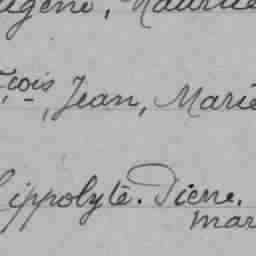 ugène, Maurice
çois, Jean, Marie
ippolyte. Pierre.
mar